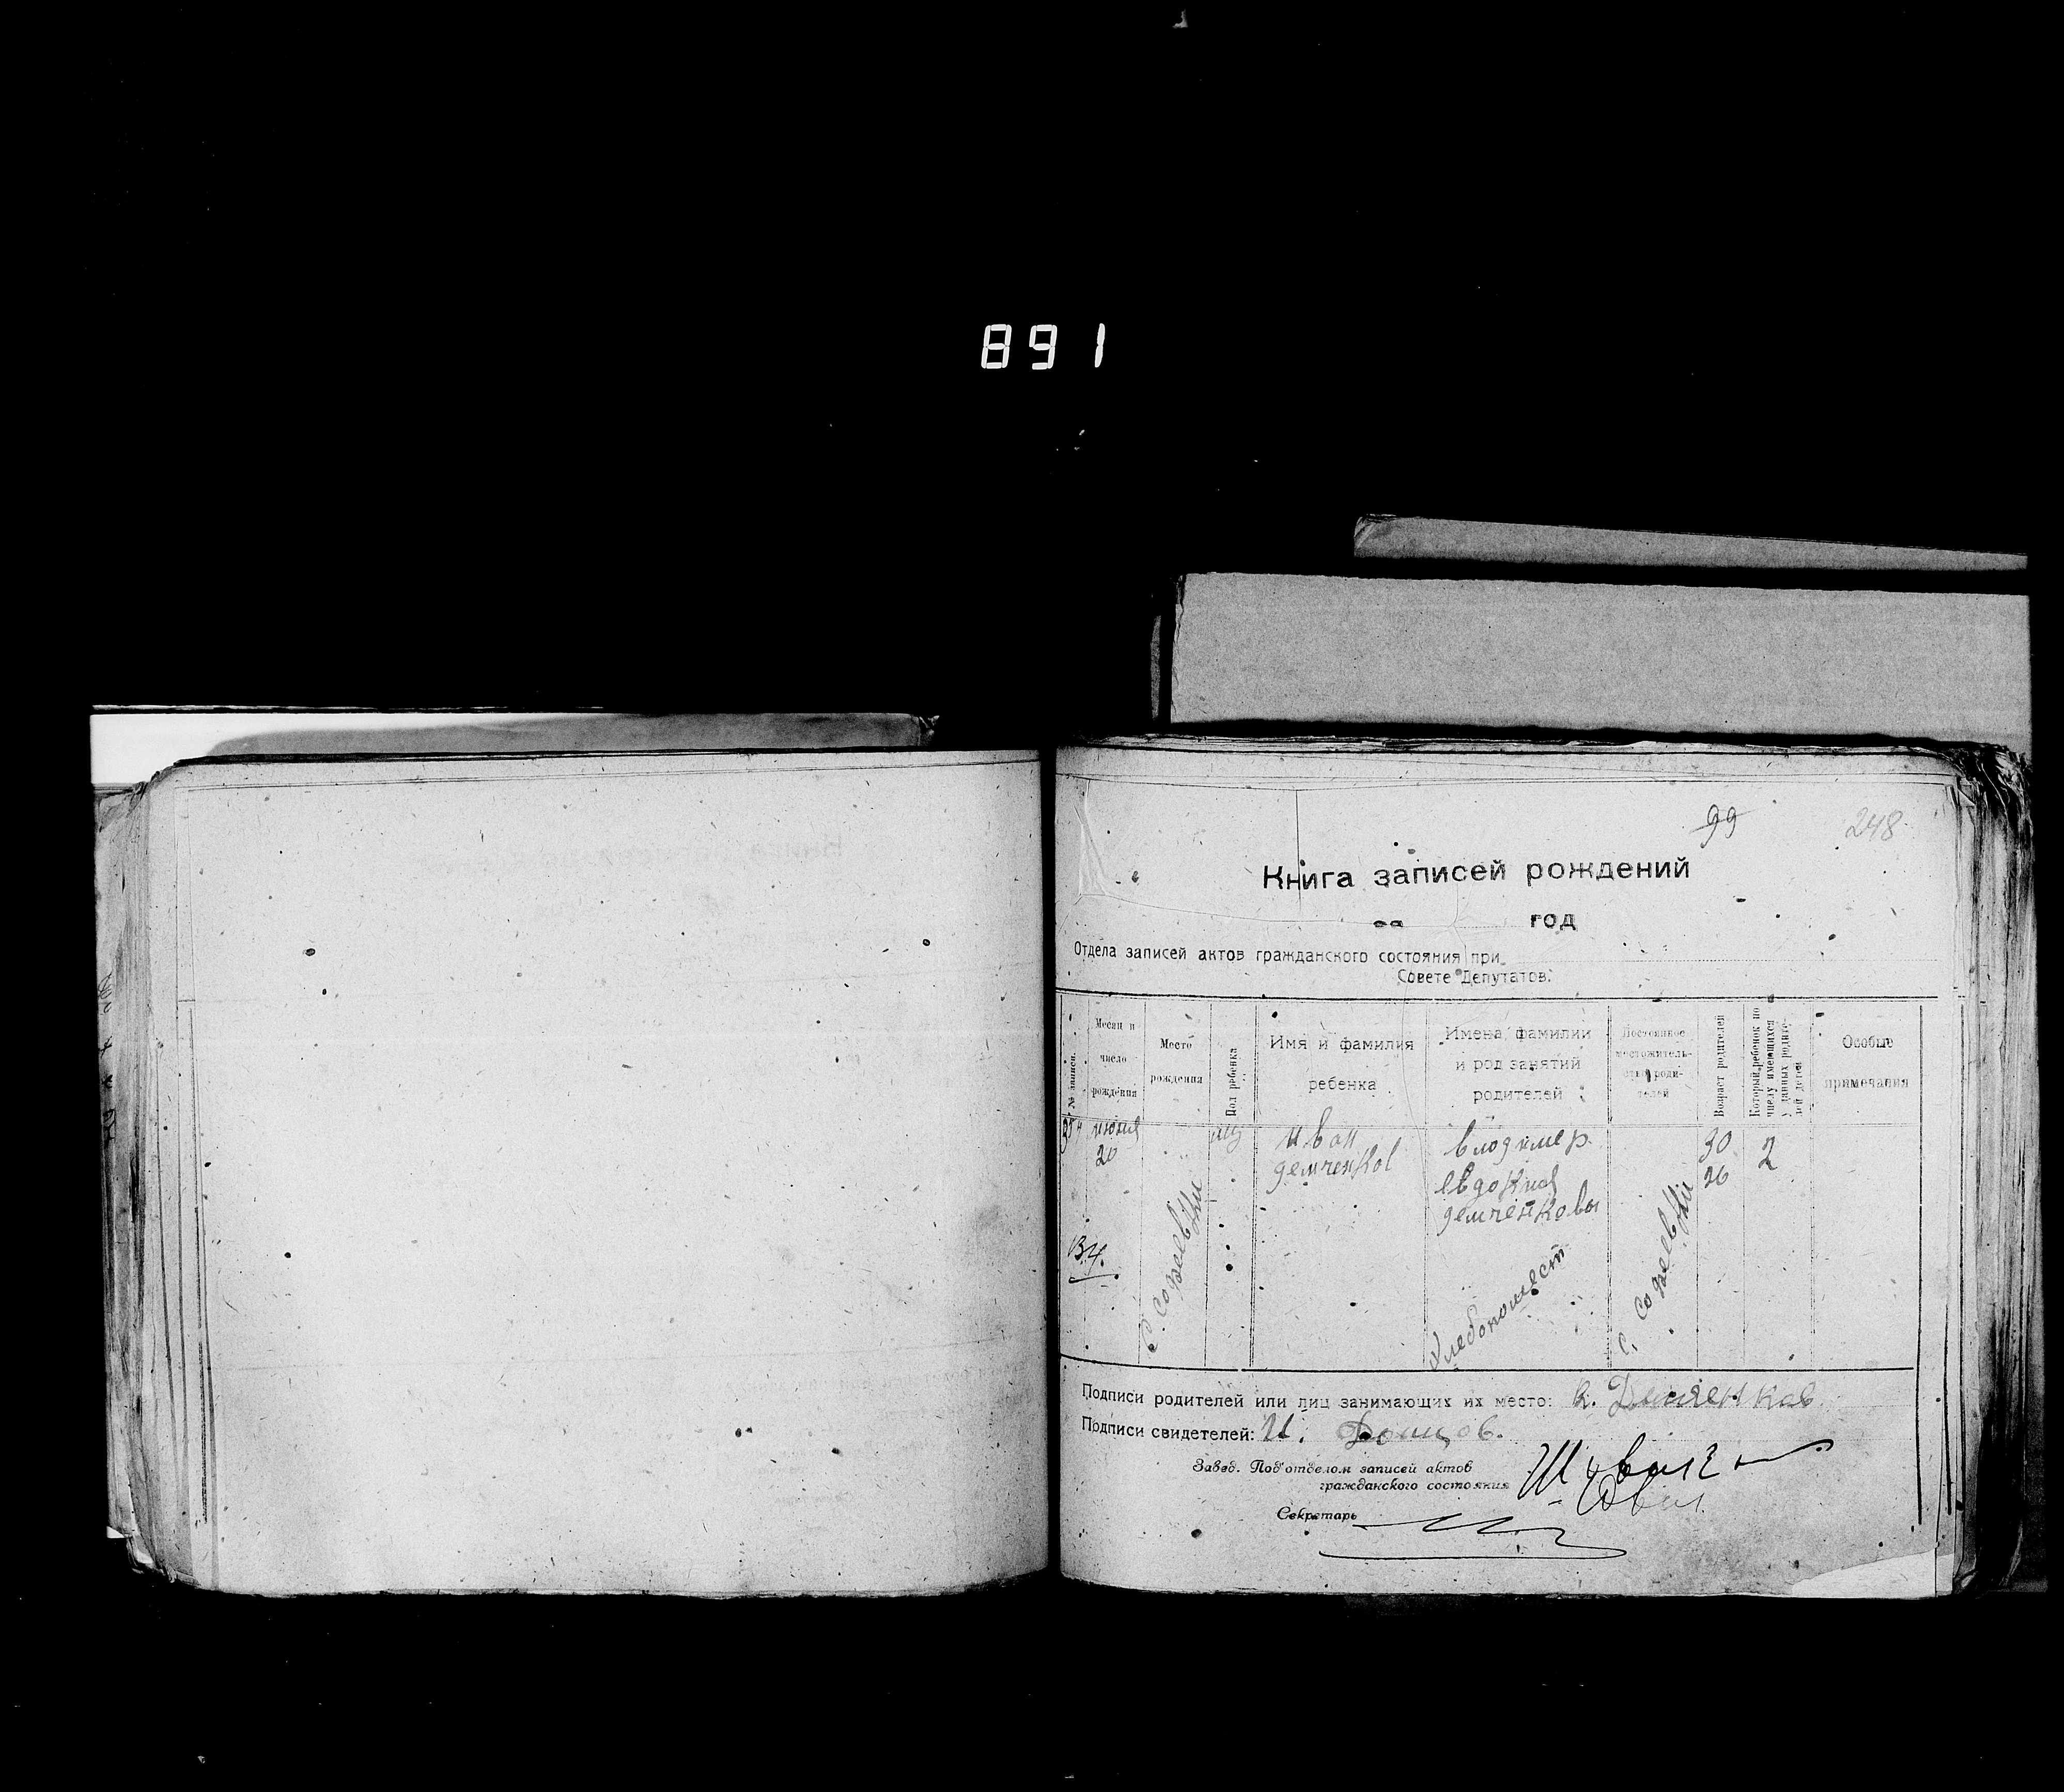 891
99
248
Книга записей рождений
за год
Отдела записей актов гражданского состояния при
Совете Депутатов.
№ записи.
Месяц и число рождения
Место рождения
Пол ребенка
Имя и фамилия ребенка
Имена фамилии и род занятий родителей
Постоянное местожительство родителей
Возраст родителей
Который ребенок по числу имеющихся у данных родителей детей
Особые примечания
июня
20
муз
иван
демченков
владимер
евдокия
демченковы
30
26
2
Хлебопошест
Подписи родителей или лиц занимающих их место: В. Демченков
Подписи свидетелей: И. Донцов.
Завед. Под'отделом записей актов
гражданского состояния
Секретарь